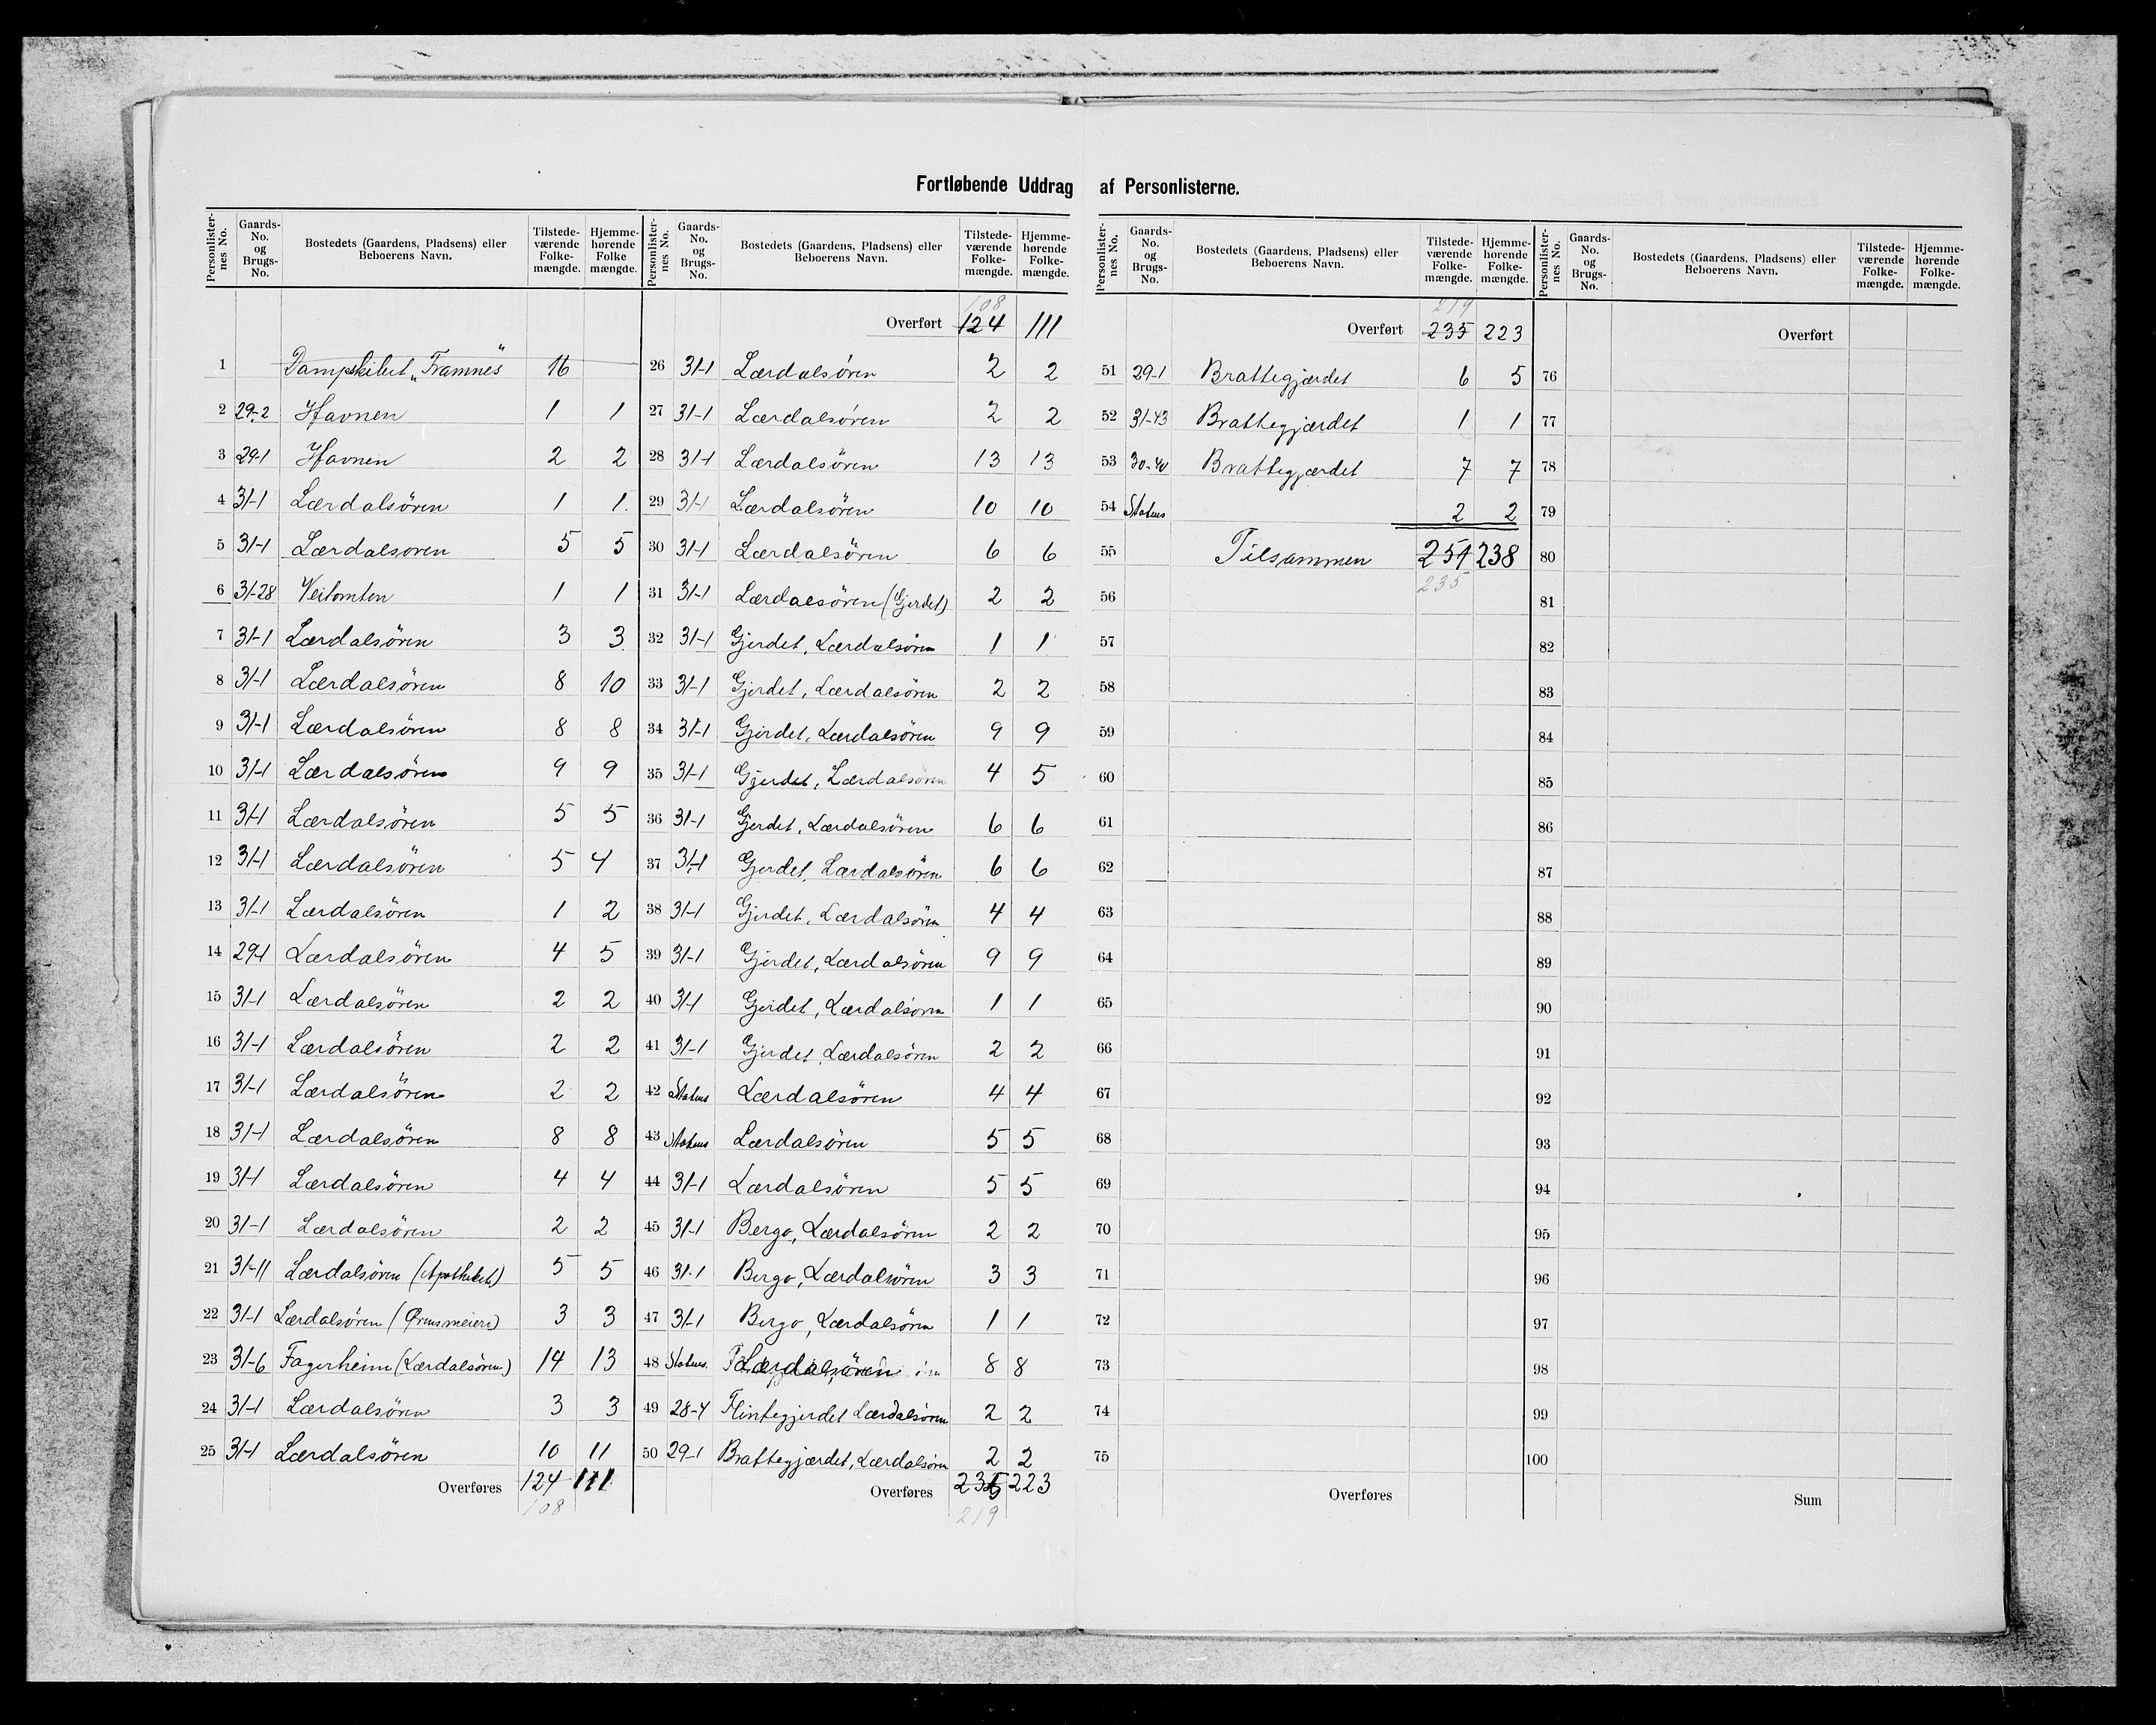 Fortløbende Uddrag af Personlisterne.
Personlister-nes No. Gaards-No. og Brugs-No. Bostedets (Gaardens, Pladsens) eller Beboerens Navn. Tilstede-værende Folke-mængde. Hjemme-hørende Folke mængde.
1 Dampskibet „Framnes" 16
2 29-2 Havnen 1 1
3 29-1 Havnen 2 2
4 31-1 Lærdalsören 1 1
5 31-1 Lærdalsoren 5 5
6 31-28 Veitomten 1 1
7 31-1 Lærdalsören 3 3
8 31-1 Lærdalsören 8 10
9 31-1 Lærdalsören 8 8
10 31-1 Lærdalsören 9 9
11 31-1 Lærdalsören 5 5
12 31-1 Lærdalsören 5 4
13 31-1 Lærdalsören 1 2
14 29-1 Lærdalsören 4 5
15 31-1 Lærdalsören 2 2
16 31-1 Lærdalsören 2 2
17 31-1 Lærdalsören 2 2
18 31-1 Lærdalsören 8 8
19 31-1 Lærdalsören 4 4
20 31-1 Lærdalsören 2 2
21 31-11 Lærdalsören (Apotheket) 5 5
22 31-1 Lærdalsören (Ørensmeieri) 3 3
23 31-6 Fagerheim (Lærdalsören) 14 13
24 31-1 Lærdalsören 3 3
25 31-1 Lærdalsören 10 11
Overføres 124 111
108
Personlister-nes No. Gaards-No. og Brugs-No. Bostedets (Gaardens, Pladsens) eller Beboerens Navn. Tilstede-værende Folke-mængde. Hjemme-hørende Folke-mængde.
108
Overført 124 111
26 31-1 Lærdalsören 2 2
27 31-1 Lærdalsören 2 2
28 31-1 Lærdalsören 13 13
29 31-1 Lærdalsören 10 10
30 31-1 Lærdalsören 6 6
31 31-1 Lærdalsören (Gjerdet) 2 2
32 31-1 Gjerdet, Lærdalsören 1 1
33 31-1 Gjerdet, Lærdalsören 2 2
34 31-1 Gjerdet, Lærdalsören 9 9
35 31-1 Gjerdet, Lærdalsören 4 5
36 31-1 Gjerdet, Lærdalsören 6 6
37 31-1 Gjerdet, Lærdalsören 6 6
38 31-1 Gjerdet, Lærdalsören 4 4
39 31-1 Gjerdet, Lærdalsören 9 9
40 31-1 Gjerdet, Lærdalsören 1 1
41 31-1 Gjerdet, Lærdalsören 2 2
42 Statens Lærdalsören 4 4
43 Statens Lærdalsören 5 5
44 31-1 Lærdalsören 5 5
45 31-1 Bergo, Lærdalsören 2 2
46 31-1 Bergo, Lærdalsören 3 3
47 31-1 Bergo, Lærdalsören 1 1
48 Statens. Lærdalsören 8 8
49 28-4 Flintegjerdet Lærdalsören 2 2
50 29-1 Brattegjærdet, Lærdalsören 2 2
Overføres 235 223
219
Personlister-nes No. Gaards-No. og Brugs-No. Bostedets (Gaardens, Pladsens) eller Beboerens Navn. Tilstede-værende Folke-mængde. Hjemme-hørende Folke-mængde.
219
Overført 235 223
51 29-1 Brattegjærdet 6 5
52 31-43 Brattegjærdet 1 1
53 30-40 Brattegjærdet 7 7
54 Statens 2 2
55 Tilsammen 251 238
235
56
57
58
59
60
61
62
63
64
65
66
67
68
69
70
71
72
73
74
75
Overføres
Personlister-nes No. Gaards-No. og Brugs-No. Bostedets (Gaardens, Pladsens) eller Beboerens Navn. Tilstede-værende Folke-mængde. Hjemme-hørende Folke-mængde.
Overført
76
77
78
79
80
81
82
83
84
85
86
87
88
89
90
91
92
93
94
95
96
97
98
99
100
Sum